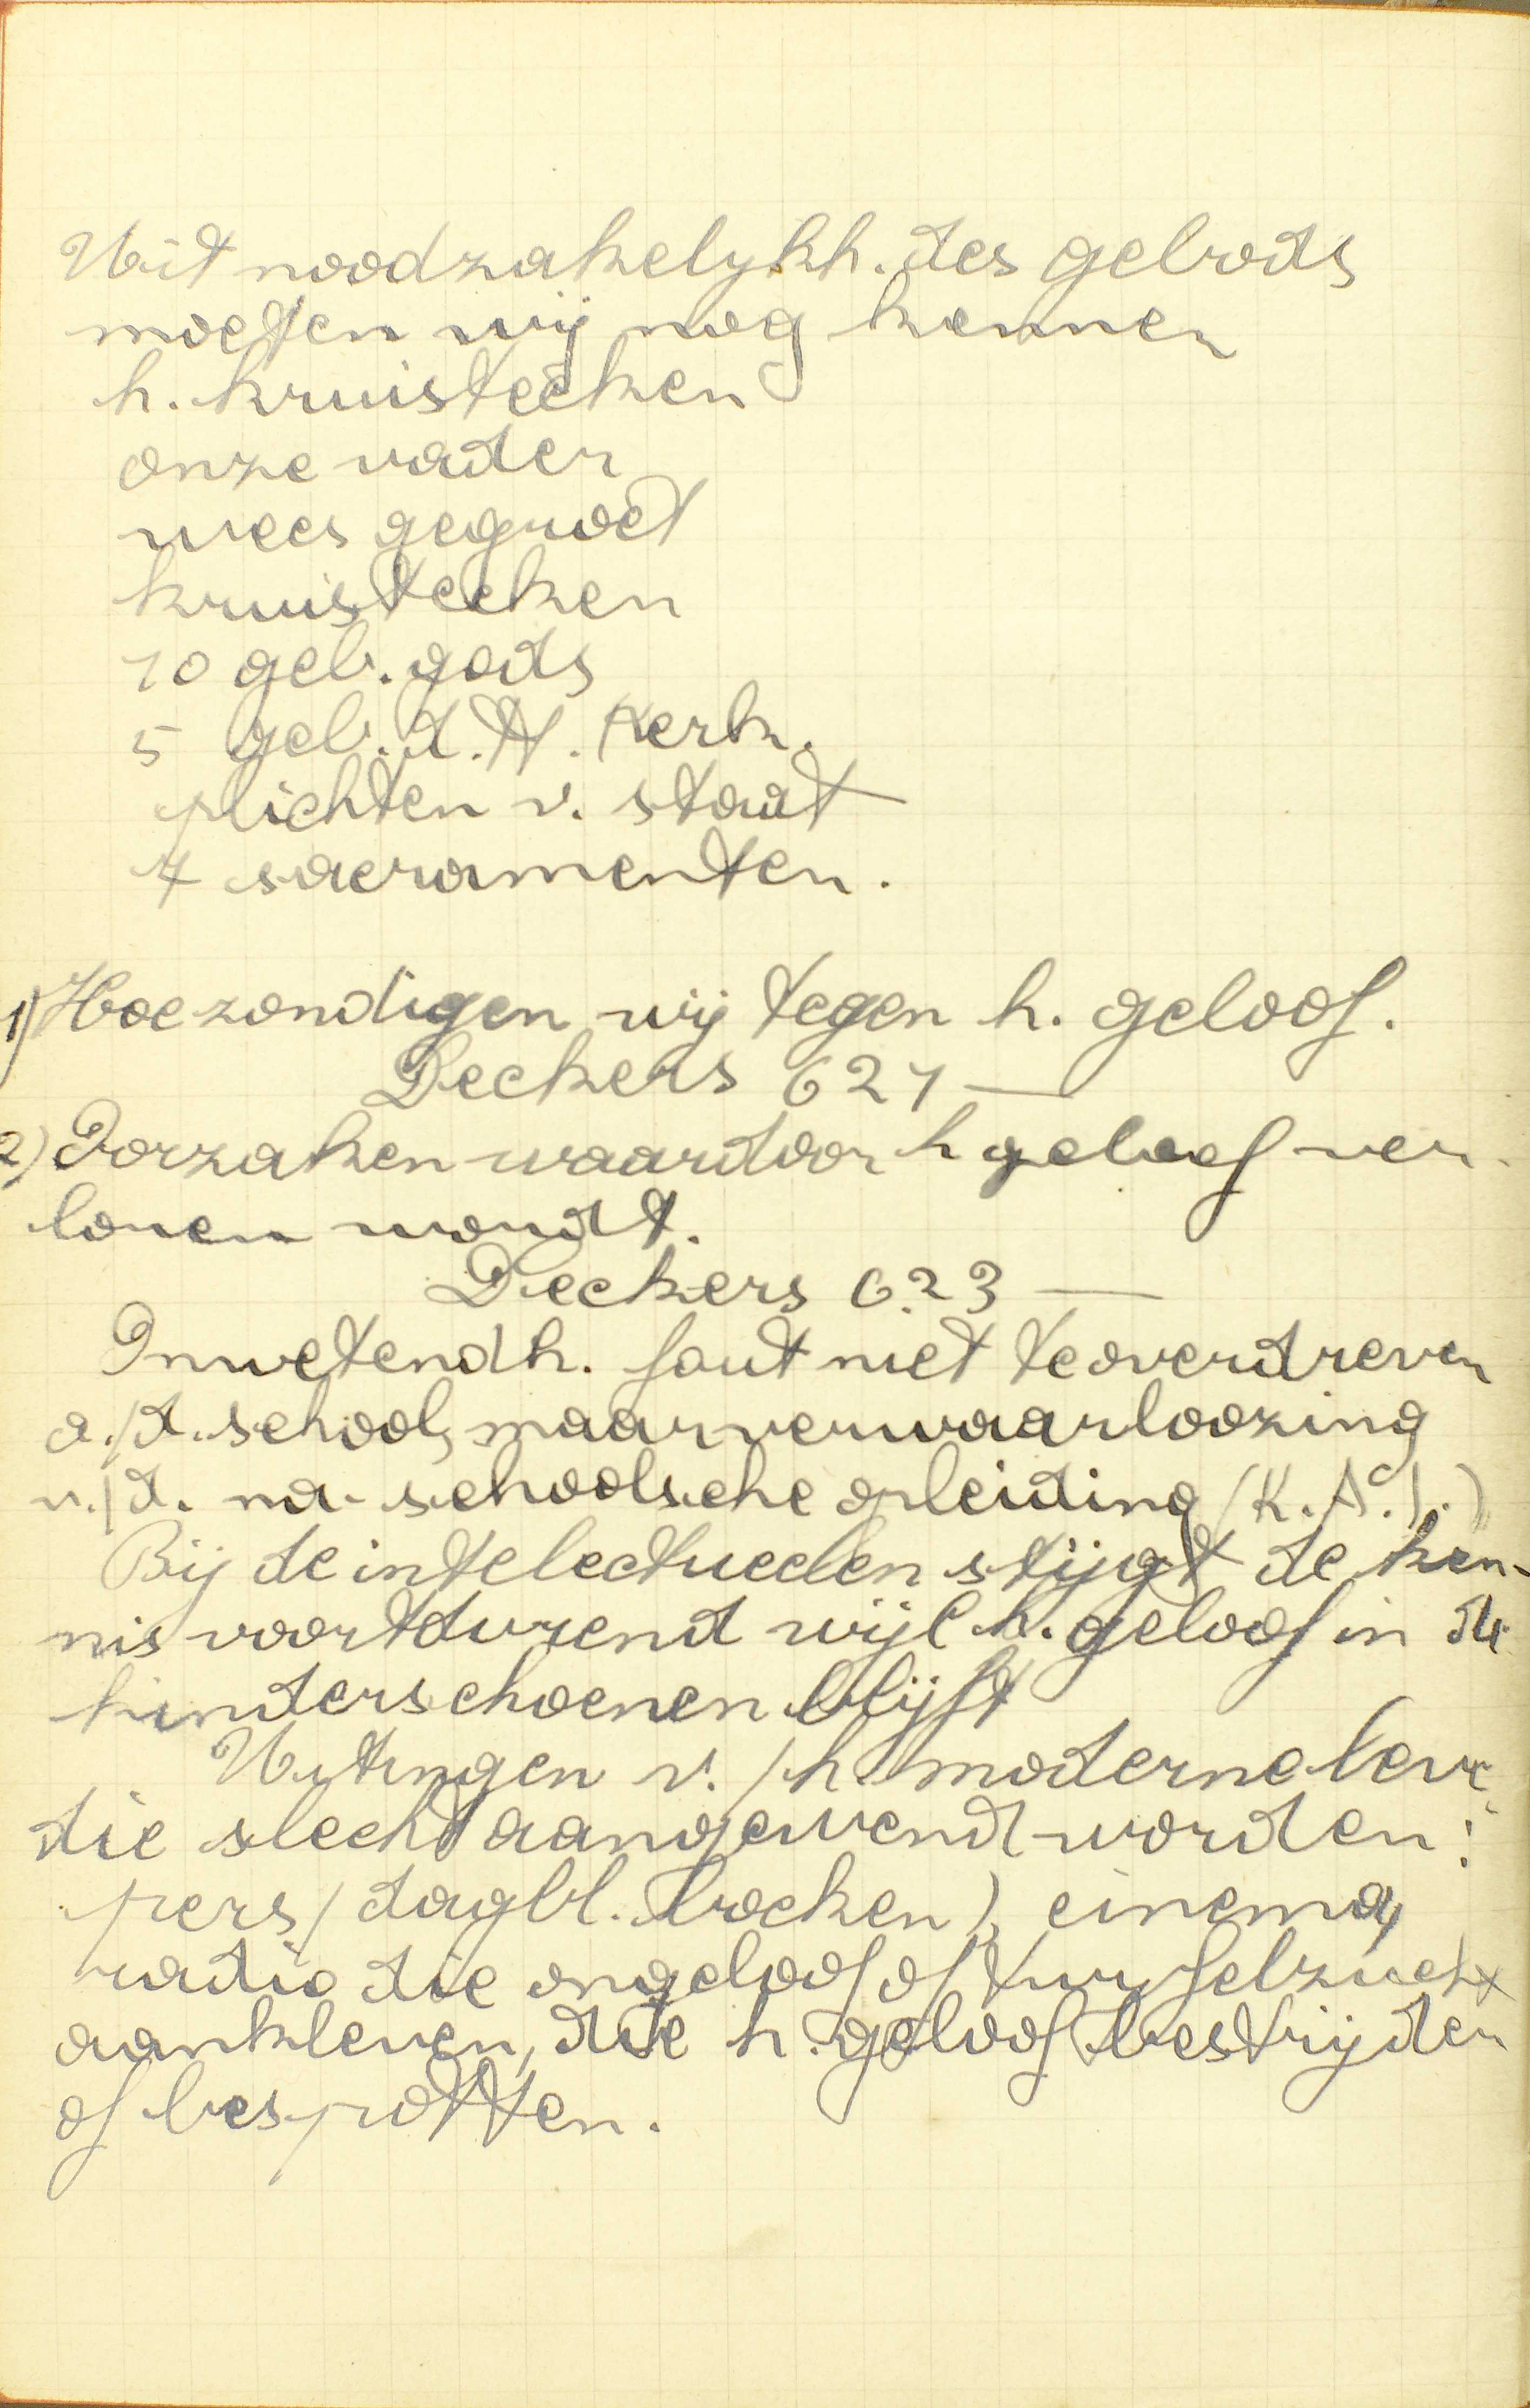 Uit noodzakelykh. des gebods
moeten wij nog kennen
h. kruisteeken
onze vader
wees gegroet
kruisteeken
10 geb. gods
5 geb. d. H. Kerk.
plichten v. staat
7 sacramenten.
1) Hoe zondigen wij tegen h. geloof.
Deckers 621 —
2) Oorzaken waardoor h geloof ver-
loren wordt.
Deckers 623 —
Onwetendh. fout niet te overdreven
a./d. school, maar verwaarloozing
v./d. na-schoolsche opleiding (K. A.).)
Bij de intelectueelen stijgt de ken-
nis voortdurend wijl h. geloof in de
kinderschoenen blijft
Uitingen v./h. moderne leve
die slecht aangewend worden:
pers (dagbl. boeken), cinema,
radio die ongeloof of twyfelzucht
aankleven, die h. geloof bestrijden
of bespotten.